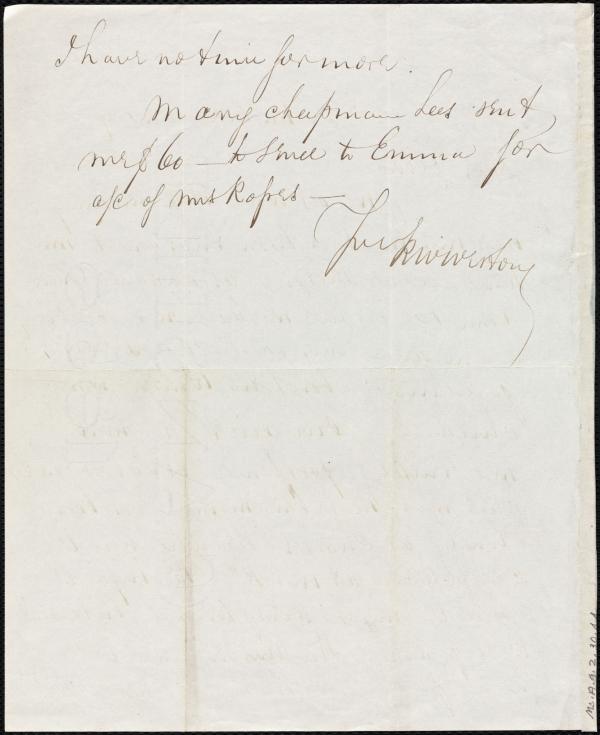 I have not time for more.
Mary Chapman has sent
me $60 — to send to Emma for
a/c of Mrs Rofres —
R W Weston
Ms.A.9.2.30.